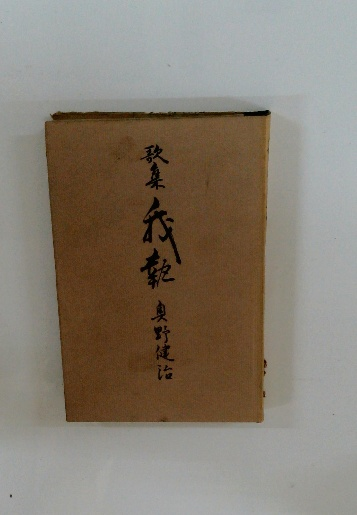 歌集 我執 奥野健治